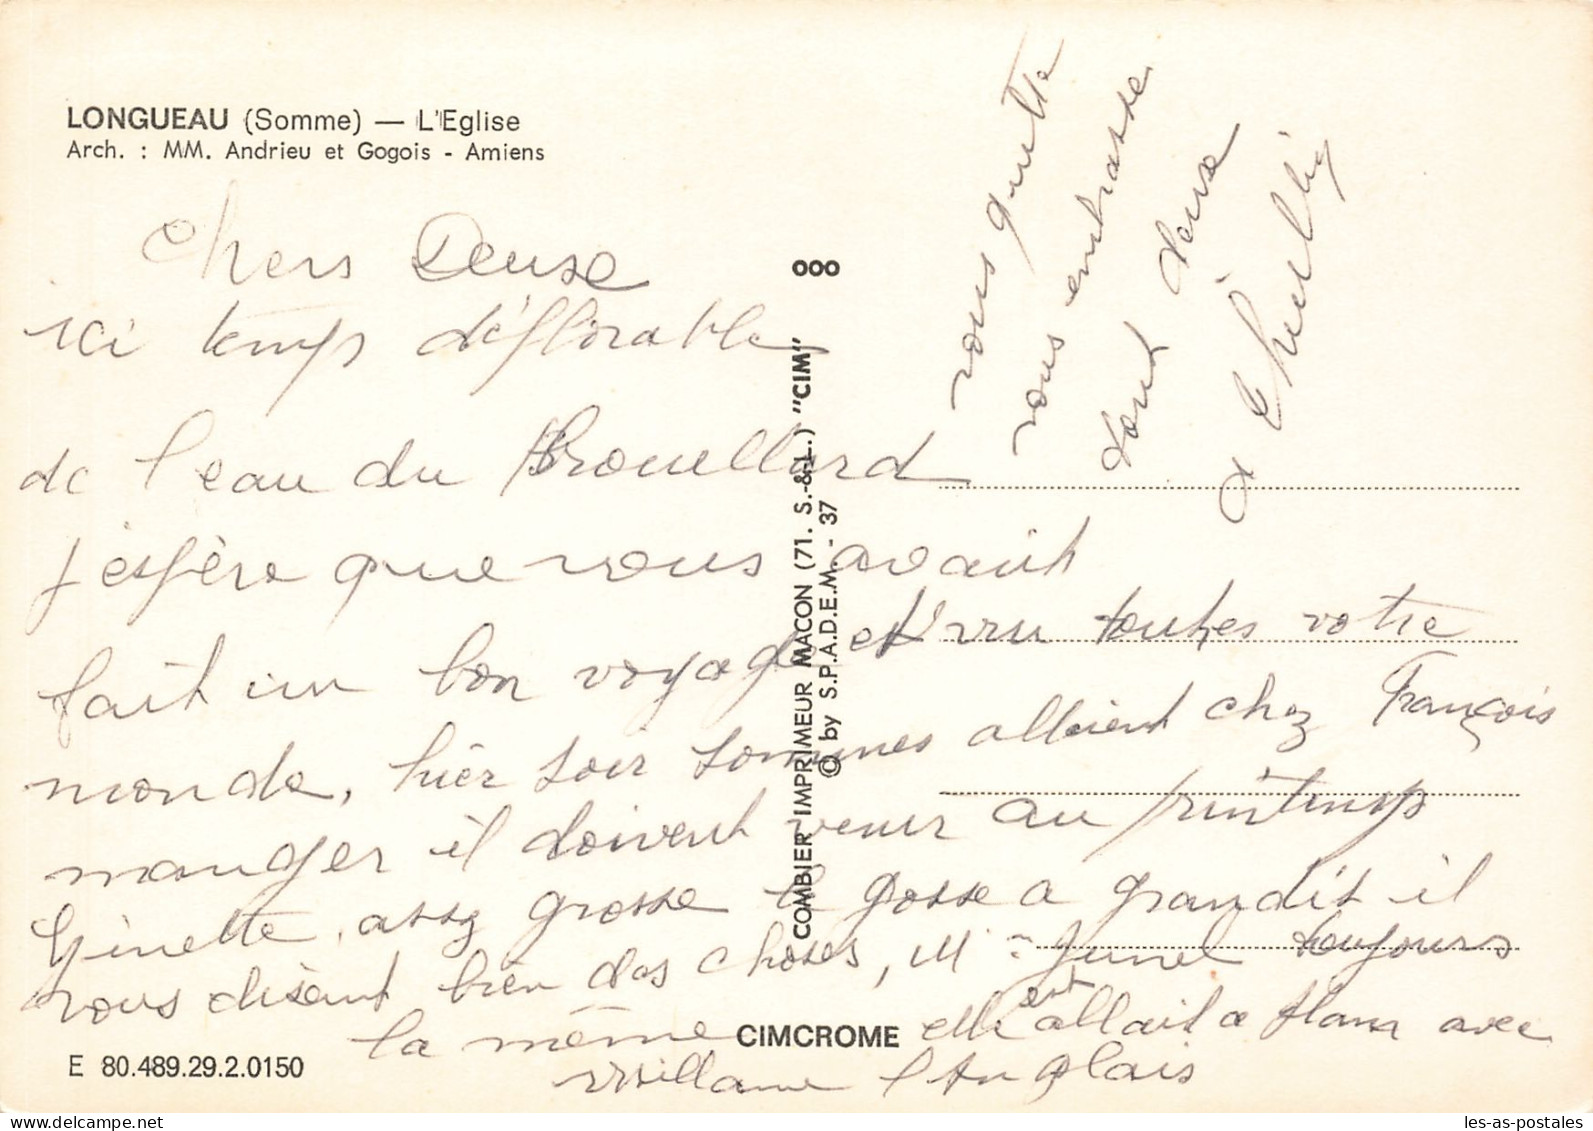 LONGUEAU (Somme) — L'Eglise
Arch. : MM. Andrieu et Gogois - Amiens
Chers Denise
ici temps déplorable
de l'eau du Brouellard
j'espère que vous avaiit
fait un bon voyage et vu toutes votre
monde, hier soir sommes alleient chez François
manger il doivent venir au printemps
Ginette, assez grosse le gosse a grandit il
vous disent bien des choses, M toujours
la même elle est allait a avec
l'Anglais
vous quitte
vous embrasse
tout
ooo
COMBIER IMPRIMEUR MACON (71. S.-&-L.) "CIM"
© by S.P.A.D.E.M. - 37
CIMCROME
E 80.489.29.2.0150
delcampe.net
les-as-postales